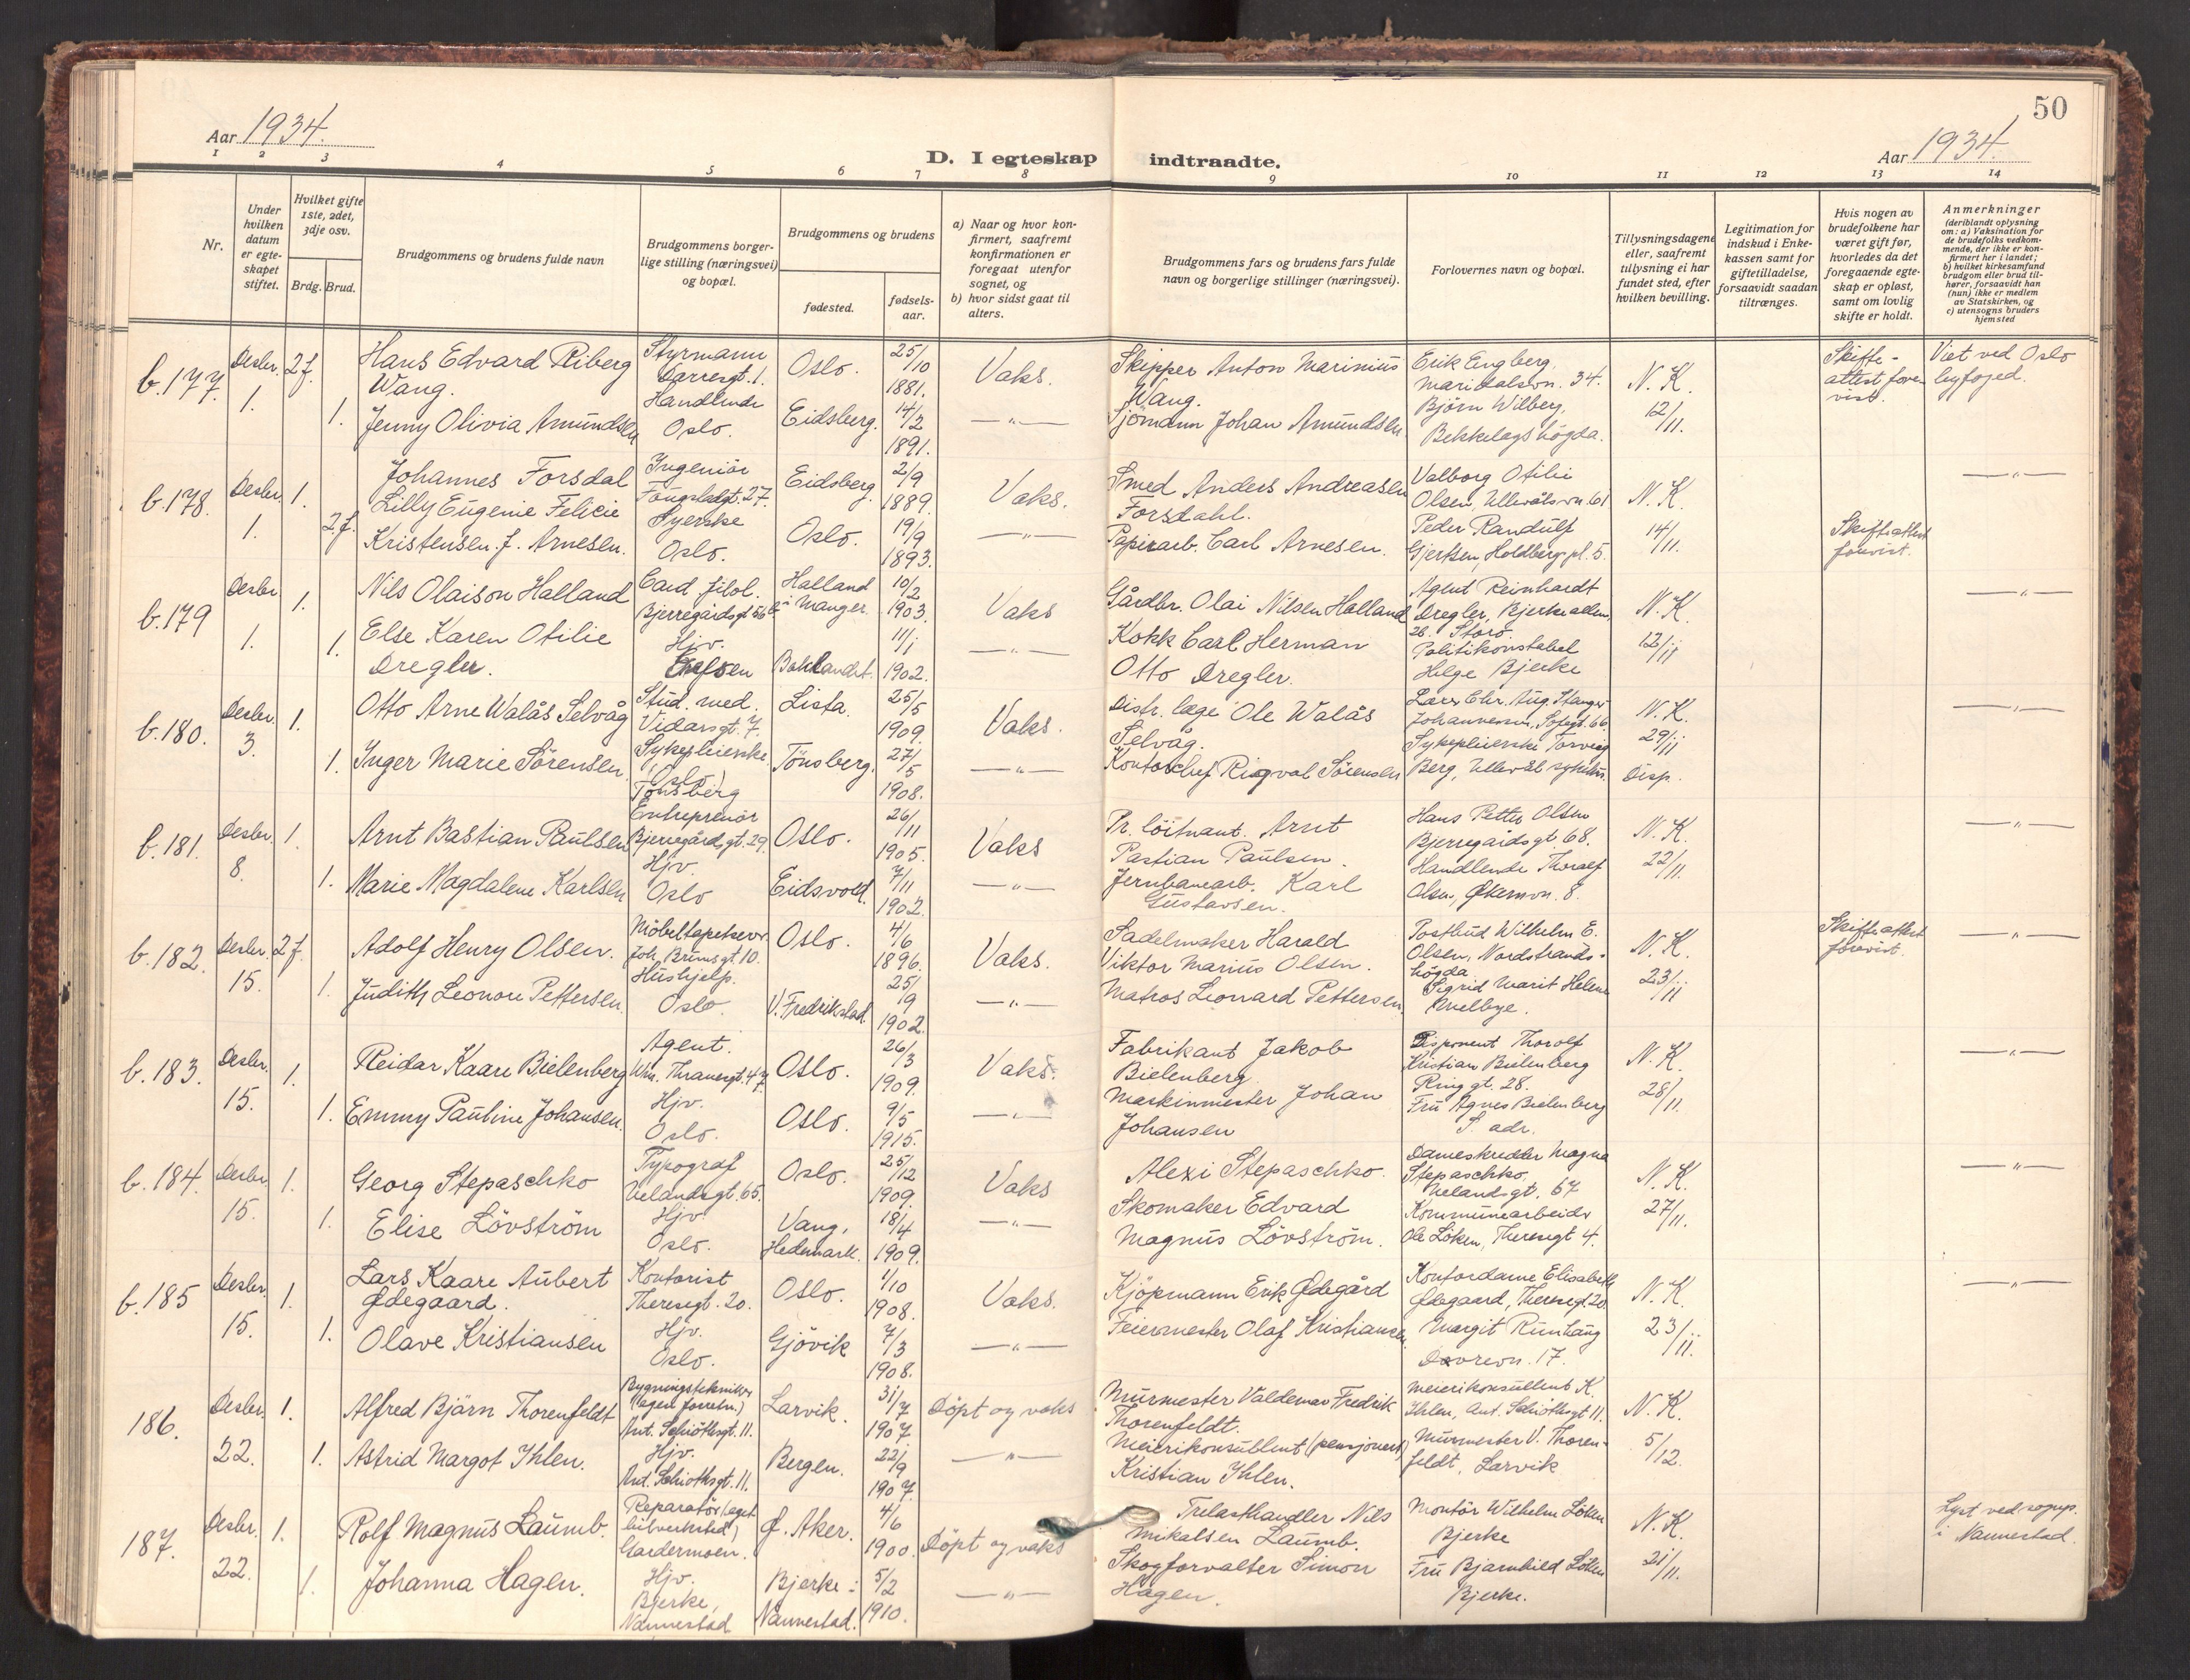 50
Aar 1934.
Aar 1934.
D. I egteskap indtraadte.
1 2 3 4 5 6 7 8 9 10 11 12 13 14
Nr.
Under hvilken datum er egteskapet stiftet.
Hvilket gifte 1ste, 2det, 3dje osv.
Brdg. Brud.
Brudgommens og brudens fulde navn
Brudgommens borgerlige stilling (næringsvei) og bopæl.
Brudgommens og brudens
fødested.
fødselsaar.
a) Naar og hvor konfirmert, saafremt konfirmationen er foregaat utenfor sognet, og
b) hvor sidst gaat til alters.
Brudgommens fars og brudens fars fulde navn og borgerlige stillinger (næringsvei).
Forlovernes navn og bopæl.
Tillysningsdagene eller, saafremt tillysning ei har fundet sted, efter hvilken bevilling.
Legitimation for indskud i Enkekassen samt for giftetilladelse, forsaavidt saadan tiltrænges.
Hvis nogen av brudefolkene har været gift før, hvorledes da det foregaaende egteskap er opløst, samt om lovlig skifte er holdt.
Anmerkninger
(deriblandt oplysning om: a) Vaksination for de brudefolks vedkommende, der ikke er konfirmert her i landet;
b) hvilket kirkesamfund brudgom eller brud tilhører, forsaavidt han (hun) ikke er medlem av Statskirken, og
c) utensogns bruders hjemsted
b. 177. Desbr. 1. 2 f. Hans Edvard Riberg Wang. Styrmann Darresgt. 1. Oslo. 25/10 1881. Vaks. Skipper Anton Marinius Wang. Erik Engberg, Maridalsvn. 34. N. K. Skifteattest forevist. Viet ved Oslo byfoged.
1. Jenny Olivia Amundsen Handlende Oslo. Eidsberg. 14/2 1891. —"— Sjömann Johan Amundsen. Björn Wilberg, Bekkelagshögda. 12/11.
b. 178. Desbr. 1. 1. Johannes Forsdal Ingeniör Fougstadgt. 27. Eidsberg 2/9 1889. Vaks. Smed Anders Andreasen Forsdahl. Valborg Otilie Olsen, Ullevålsvn. 61 N. K. —"—
2 f. Lilly Eugenie Felicie Kristensen f. Arnesen. Syerske Oslo. Oslo. 19/9 1893. —"— Papirarb. Carl Arnesen. Peder Randulf Gjertsen, Holdbergspl. 5. 14/11. Skifteattest forevist.
b. 179 Desbr. 1. 1. Nils Olaison Halland Cand. filol. Bjerregårdsgt 56 b. Halland i Manger 10/2 1903. Vaks Gårdbr. Olai Nilsen Halland Agent Reinhardt Dregler, Bjerkealleen 26. Storo. N. K. —"—
1. Else Karen Otilie Dregler. Hjv. Grefsen Baklandet. 11/1 1902. —"— Kokk Carl Herman Otto Dregler. Politikonstabel Helge Bjerke 12/11
b. 180. Desbr. 3. 1. Otto Arne Walås Selvåg Stud. med. Vidarsgt. 7. Lista. 25/5 1909. Vaks. Distr. læge Ole Walås Selvåg. Lars Chr. Aug. Stanger Johannessen, Sofiegt. 66. N. K. —"—
1. Inger Marie Sörensen. Sykepleierske (Oslo) Tönsberg Tönsberg. 27/5 1908. —"— Kontorchef Rigval Sörensen Sykepleierske Torveig Berg, Ullevål sykehus. 29/11 Disp.
b. 181. Desbr. 8. 1. Arnt Bastian Paulsen Entreprenör Bjerregårdsgt. 29. Oslo. 26/11 1905. Vaks Pr. löitnant. Arnt Pastian Paulsen. Hans Petter Olsen Bjerregårdsgt. 68. N. K. —"—
1. Marie Magdalene Karlsen Hjv. Oslo Eidsvold. 7/11 1902. —"— Jernbanearb. Karl Gustavsen. Handlende Thoralf Olsen, Økernvn. 8. 22/11.
b. 182. Desbr. 15. 2 f. Adolf Henry Olsen. Möbeltapetserer. Joh. Brunsgt. 10. Oslo. 4/6 1896. Vaks. Sadelmaker Harald Viktor Marius Olsen. Postbud Wilhelm E. Olsen, Nordstrandshögda N. K. Skifteattest forevist. —"—
1. Judith Leonore Pettersen. Hushjelp. Oslo V. Fredrikstad. 25/9 1902. —"— Matros Leonard Pettersen. Sigrid Marit Helene Melbye. 23/11
b. 183. Desbr. 15. 1. Reidar Kaare Bielenberg Agent. Wm. Thranesgt. 47. Oslo. 26/3 1909. Vaks. Fabrikant Jakob Bielenberg. Disponent Thorolf Kristian Bielenberg Ringgt. 28. N. K. —"—
1. Emmy Pauline Johansen. Hjv. Oslo. Oslo. 9/5 1915. —"— Maskinmester Johan Johansen Fru Agnes Bielenberg S. adr. 28/11.
b. 184. Desbr. 15. 1. Georg Stepaschko Typograf Uelandsgt. 65. Oslo. 25/12 1909. Vaks Alexi Stepaschko. Dameskredder Magna Stepaschko, Uelandsgt. 67 N. K. —"—
1. Elise Lövström Hjv. Oslo. Vang, Hedemark. 18/4 1909. —"— Skomaker Edvard Magnus Lövström. Kommunearbeider Ole Löken, Theresgt 4. 27/11.
b. 185 Desbr. 15. 1. Lars Kaare Aubert Ødegaard. Kontorist Theresegt. 20. Oslo. 1/10 1908. Vaks. Kjöpmann Erik Ødegård Kontordame Elisabeth Ødegaard, Theresegt. 20 N. K. —"—
1. Olave Kristiansen Hjv. Oslo. Gjövik 7/3 1908. —"— Feiermester Olaf Kristiansen. Margit Runhaug Dovrevn. 17. 23/11.
186. Desbr. 22. 1. Alfred Björn Thorenfeldt Bygningstekniker (egen forretn.) Ant. Schiöthsgt. 11. Larvik. 31/7 1907 Döpt og vaks Murmester Valdemar Fredrik Thorenfeldt. Meierikonsulent K. Ihlen, Ant. Schiöthsgt 11. N. K.
1. Astrid Margot Ihlen. Hjv. Ant. Schiöthsgt. 11. Bergen. 22/9 1907. —"— Meierikonsullent (pensjonert) Kristian Ihlen. Murmester V. Thorenfeldt, Larvik 5/12.
187. Desbr. 22. 1. Rolf Magnus Laumb. Reparatör (eget bilverksted) Gardermoen. Ø. Aker. 4/6 1900. Döpt og vaks Trelasthandler Nils Mikalsen Laumb. Montör Wilhelm Löken Bjerke N. K. Lyst ved sognepr. i Nannestad.
1. Johanna Hagen. Hjv. Bjerke, Nannestad Bjerke i Nannestad. 5/2 1910. —"— Skogforvalter Simon Hagen. Fru Bjarnhild Löken Bjerke. 21/11.